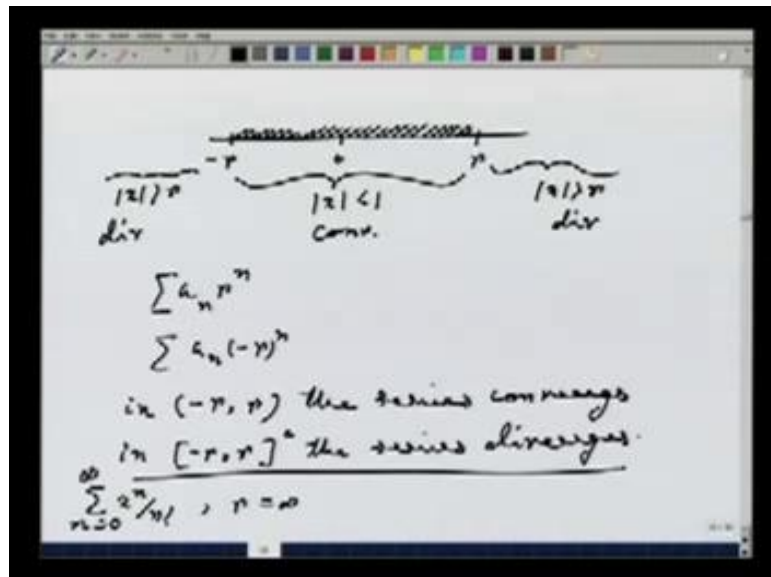 -r 0 r
|x|>r |x|<1 |x|>r
div conv. div
∑ a_n r^n
∑ a_n (-r)^n
in (-r, r) the series converges
in [-r, r]^c the series diverges.
∑_{n=0}^{∞} x^n/n! , r = ∞